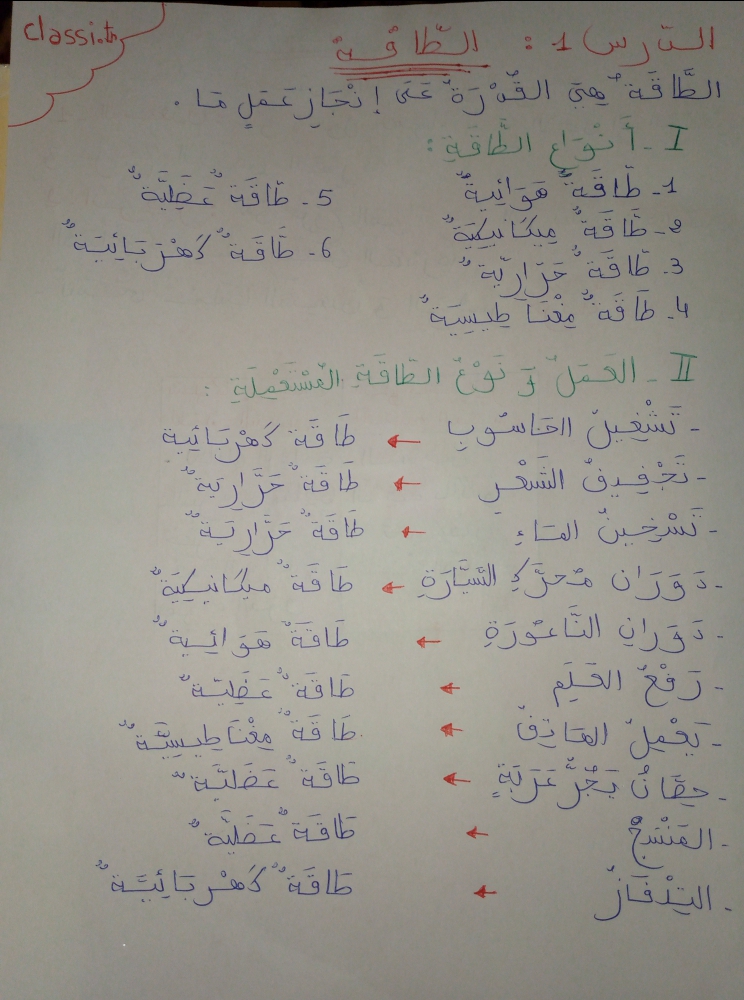 classi.tn
الدّرس 1 : الطّاقة
الطَّاقَةُ هِيَ القُدْرَةُ عَلَى إِنْجَازِ عَمَلٍ مَا .
I - أَنْوَاع الطَّاقَةِ :
1- طَاقَةٌ هَوَائِيةٌ
2- طَاقَةٌ مِيكَانِيكِيَّةٌ
3. طَاقَةٌ حَرَارِيّةٌ
4. طَاقَةٌ مِغْنَاطِيسِيَةٌ
5. طَاقَةٌ عَضَلِيَّةٌ
6. طَاقَةٌ كَهْرَبَائِيَّةٌ
II - العَمَلُ وَ نَوْعُ الطّاقَةِ المُسْتَعْمَلَةِ :
- تَشْغِيلُ الحَاسُوبِ ← طَاقَة كَهْرَبَائِية
- تَجْفِيفُ الشَّعْرِ ← طَاقَةٌ حَرَارِيَةٌ
- تَسْخِينُ المَاءِ ← طَاقَةٌ حَرَارِيَةٌ
- دَوَرَان مُحَرِّكِ السَّيَّارَةِ ← طَاقَةٌ ميكَانِيكِيَةٌ
- دَوَرَانِ النَّاعُورَةِ ← طَاقَةٌ هَوَائِيةٌ
- رَفْعُ القَلَمِ ← طَاقَةٌ عَضَلِيّةٌ
- يَعْمَلُ الهَاتِفُ ← طَاقَةٌ مِغْنَاطِيسِيَّةٌ
- حِصَانٌ يَجُرُّ عَرَبَةٍ ← طَاقَةٌ عَضَلِيَّةٌ
- المَنْسَجُ ← طَاقَةٌ عَضَلِيَّةٌ
- التِلْفَازُ ← طَاقَةٌ كَهْرَبَائِيَّةٌ